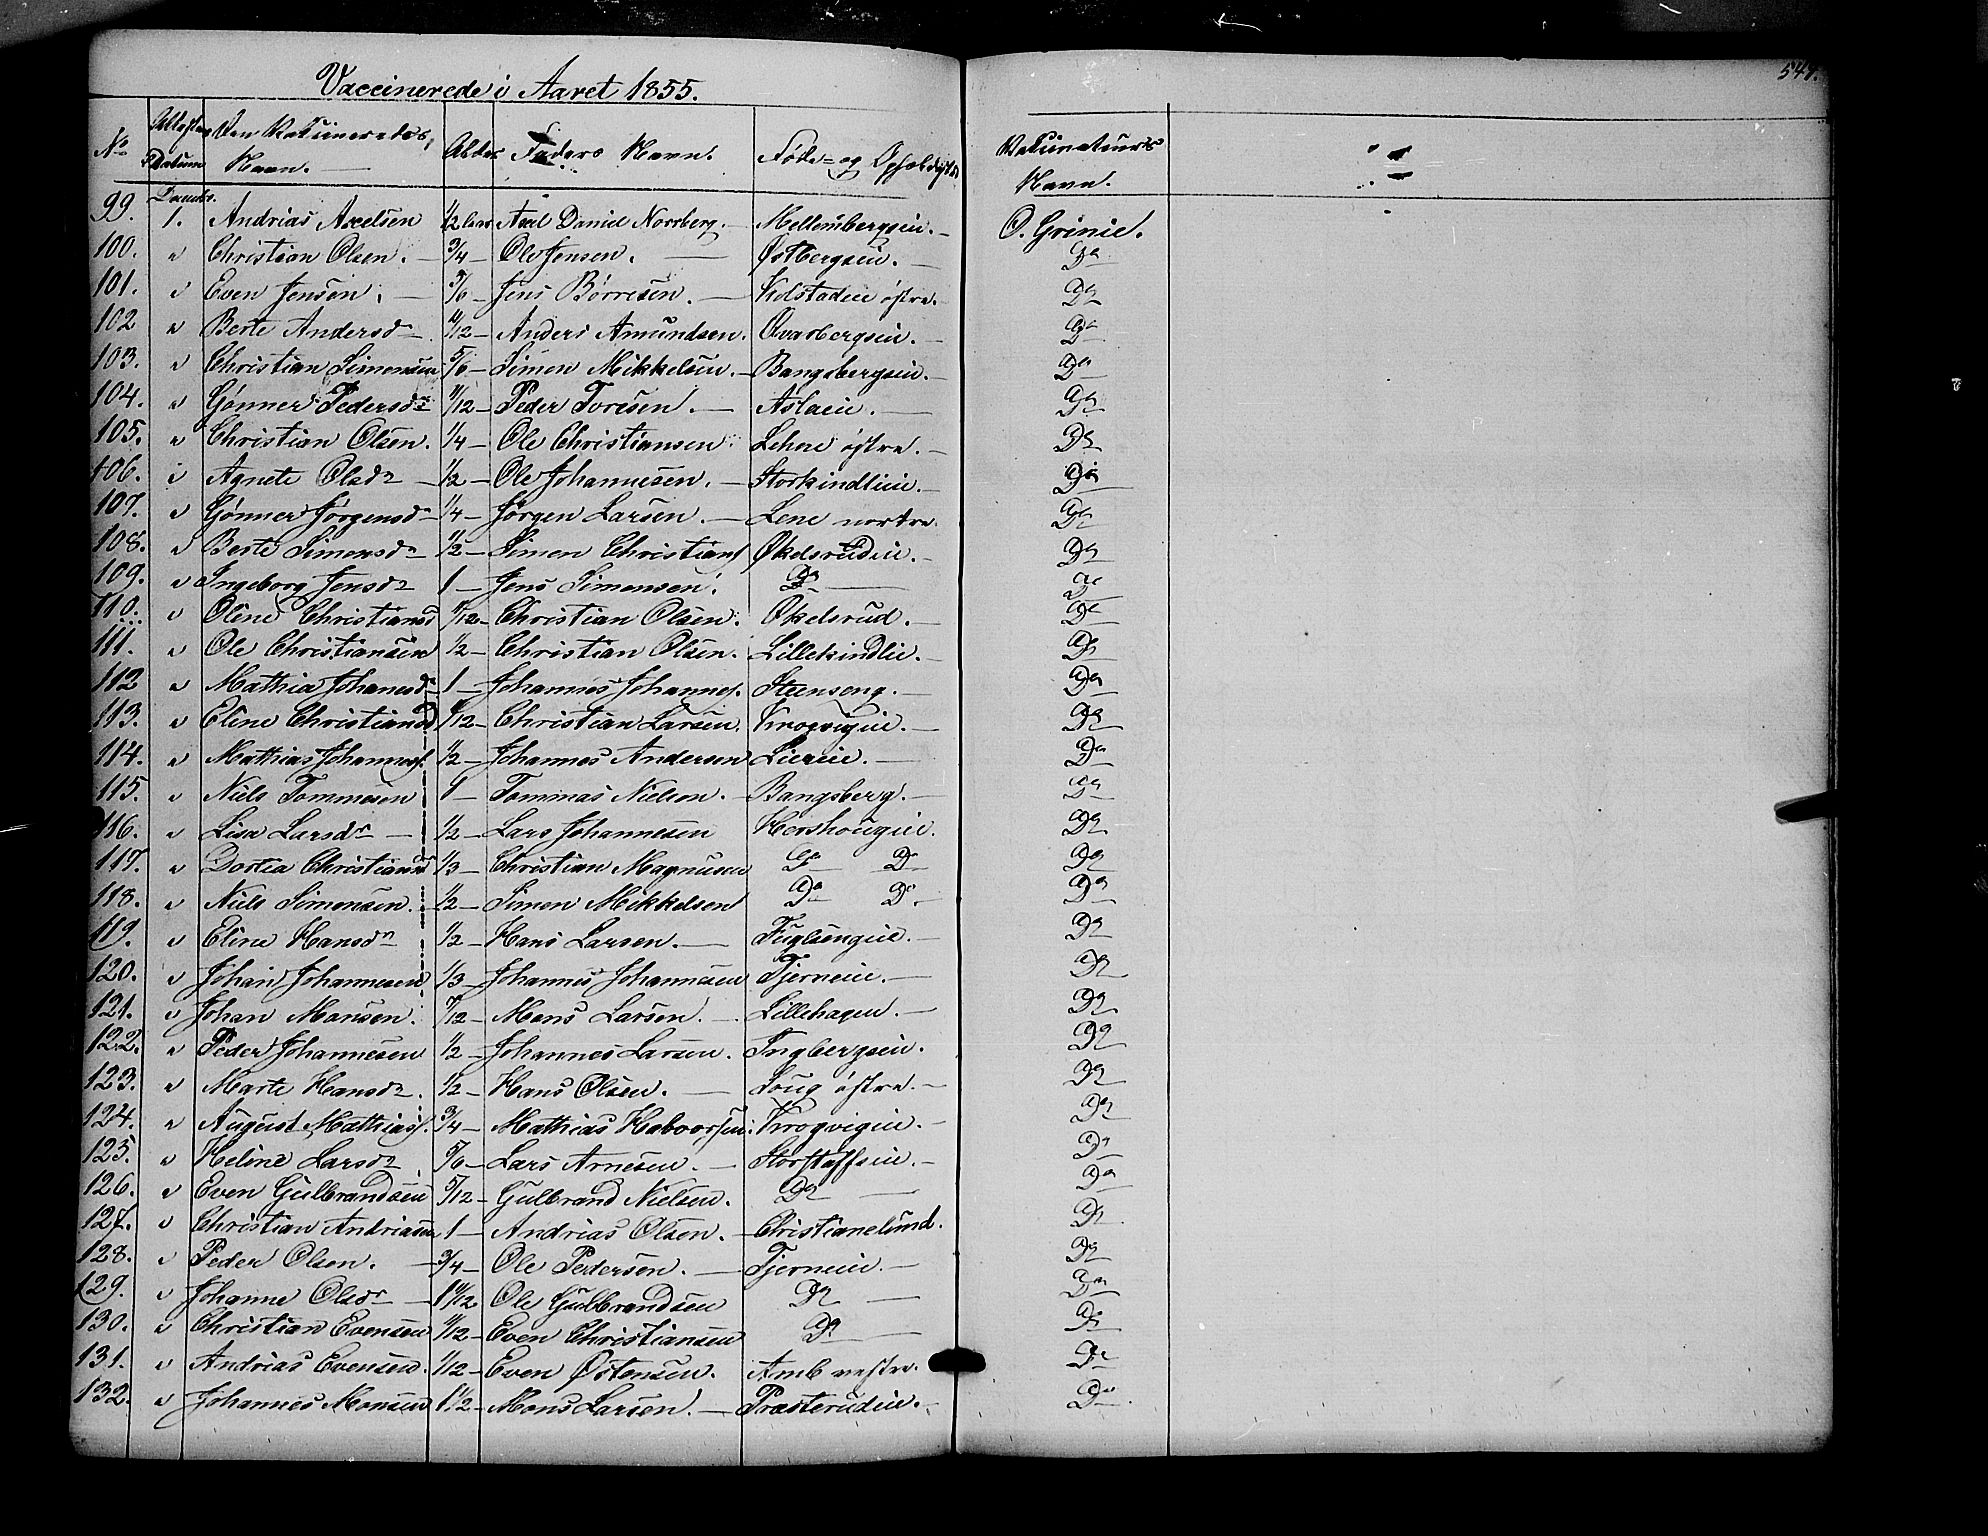 547.
Vaccinerede i Aaret 1855.
No Attestens Datum Den Vakcineredes Navn. Alder Faders Navn. Føde- og Opholdssted Vakcinateurs Navn.
99. Decembr. 1. Andrias Axelsen 1/2 Aar Axel Daniel Norrberg. Mellembergseie. O. Grinie.
100. " Christian Olsen. 3/4 Ole Jensen. Østbergseie. Do
101. " Even Jensen. 5/6 Jens Børresen. Kolstadeie østre. Do
102 " Berte Andersdr 11/12 Anders Amundsen. Qvarbergseie. Do
103. " Christian Simensen 5/6 Simen Mikkelsen. Bangsbergseie. Do
104. " Gønner Pedersdr 11/12 Peder Toresen. Aslaeie. Do
105. " Christian Olsen. 1/4 Ole Christiansen. Lehne østre. Do
106. " Agnete Olsdr 1/2 Ole Johannesen. Storkindlieie. Do
107. " Gønner Jørgensdr 1/4 Jørgen Larsen. Lene nortre. Do
108. " Berte Simensdr 1/2 Simen Christians. Økelsrudeie. Do
109. " Ingeborg Jensdr 1 Jens Simensen. Do Do
110. " Oline Christiansd /12 Christian Olsen. Økelsrud. Do
111. " Ole Christiansen 1/2 Christian Olsen. Lillekindlie. Do
112 " Mathia Johanesdr 1 Johannes Johannes. Steenseng. Do
113. " Eline Christiansd /12 Christian Larsen. Krogvigeie. Do
114. " Mathias Johannes. 1/2 Johannes Andersen Liereie. Do
115. " Niels Tommesen 1 Tommas Nielsen. Bangsberg. Do
116. " Lisa Larsdr 1/2 Lars Johannesen Hershougeie. Do
117. " Dortea Christiansd 1/3 Christian Magnusen Do Do Do
118. " Niels Simensen. 1/2 Simen Mikkelsen Do Do Do
119. " Eline Hansdr 1/2 Hans Larsen. Fuglsengeie. Do
120. " Johan Johannesen 1/3 Johannes Johannesen Tjerneie. Do
121. " Johan Monsen. 7/12 Mons Larsen. Lillehagen. Do
122. " Peder Johannesen 1/2 Johannes Larsen. Ingbergseie. Do
123. " Marte Hansdr. 1/2 Hans Olsen. Houg østre. Do
124. " August Mathias. 3/4 Mathias Haborsen. Krogvigeie. Do
125. " Heline Larsdr 5/6 Lars Arnesen. Storstaffseie. Do
126. " Even Gulbrandsen 5/12 Gulbrand Nielsen. Do Do
127. " Christian Andriasen 1 Andrias Olsen. Christianelund. Do
128. " Peder Olsen. 3/4 Ole Pedersen. Tjerneie. Do
129. " Johanne Olsdr 1 /12 Ole Gulbrandsen Do Do
130. " Christian Evensen /12 Even Christiansen Do Do
131. " Andrias Evensen. /12 Even Østensen. Arnb vestre. Do
132. " Johannes Monsen 1 1/2 Mons Larsen. Præsterudeie. Do